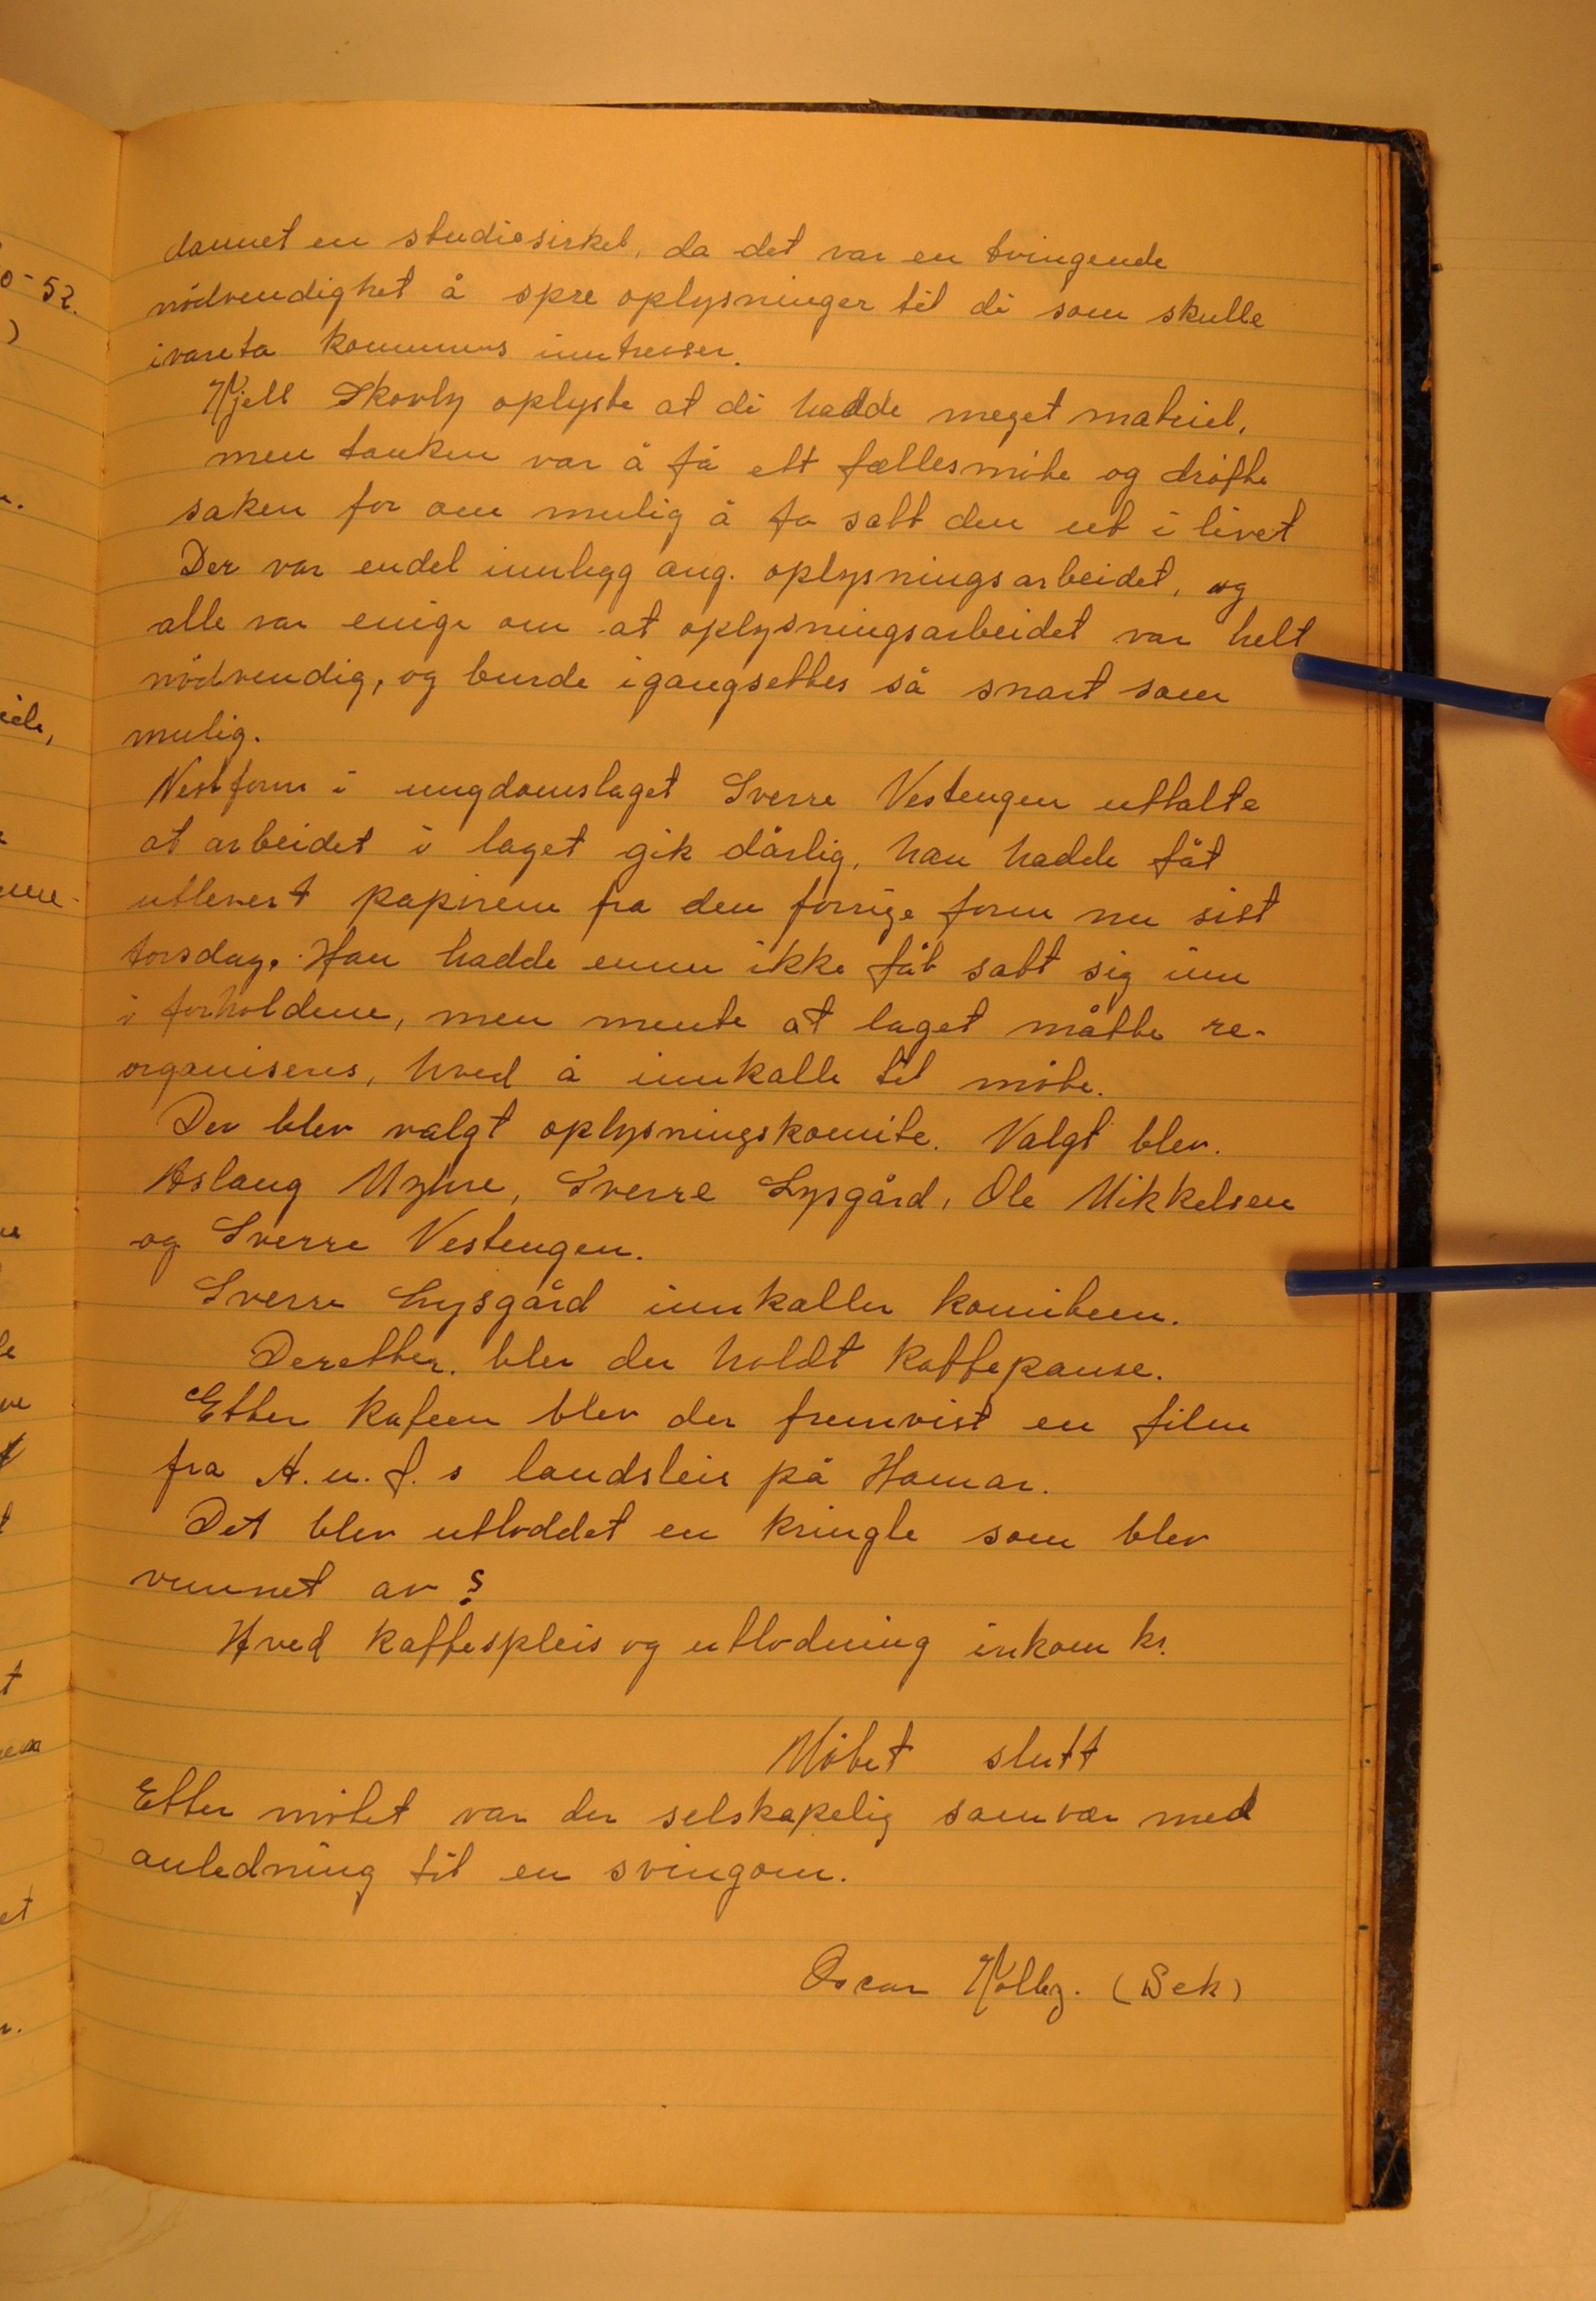 dannet en studiesirkel, da det var en tvingende
nödvendighet å spre oplysninger til di som skulle
ivareta kommuns inntresser.
Kjell Skovly oplyste at di hadde meget matriel,
men tanken var å få ett fællesmöte og dröfte
saken for om mulig å få satt den ut i livet
Der var endel innlegg ang. oplysningsarbeidet, og
alle var enige om at oplysningsarbeidet var helt
nödvendig, og burde igangsettes så snart som
mulig.
Nestform i ungdomslaget Sverre Vestengen uttalte
at arbeidet i laget gik dårlig, han hadde fåt
utlevert papirene fra den forrige form nu sist
torsdag. Han hadde ennu ikke fåt satt sig inn
i forholdene, men mente at laget måtte re-
organiseres, hved å innkalle til möte.
Der blev valgt oplysningskomite. Valgt blev.
Aslaug Myhre, Sverre Lysgård, Ole Mikkelsen
og Sverre Vestengen.
Sverre Lysgård innkaller komiteen.
Deretter. blev der holdt kaffepause.
Etter kafeen blev der fremvist en film
fra A.u.f.s landsleir på Hamar.
Det blev utloddet en kringle som blev
vunnet av ?
Hved kaffespleis og utlodning inkom kr.
Möbet slutt
Etter möbet var der selskapelig samvær med
anledning til en svingom.
Oscar (Sek)
0-52.
)